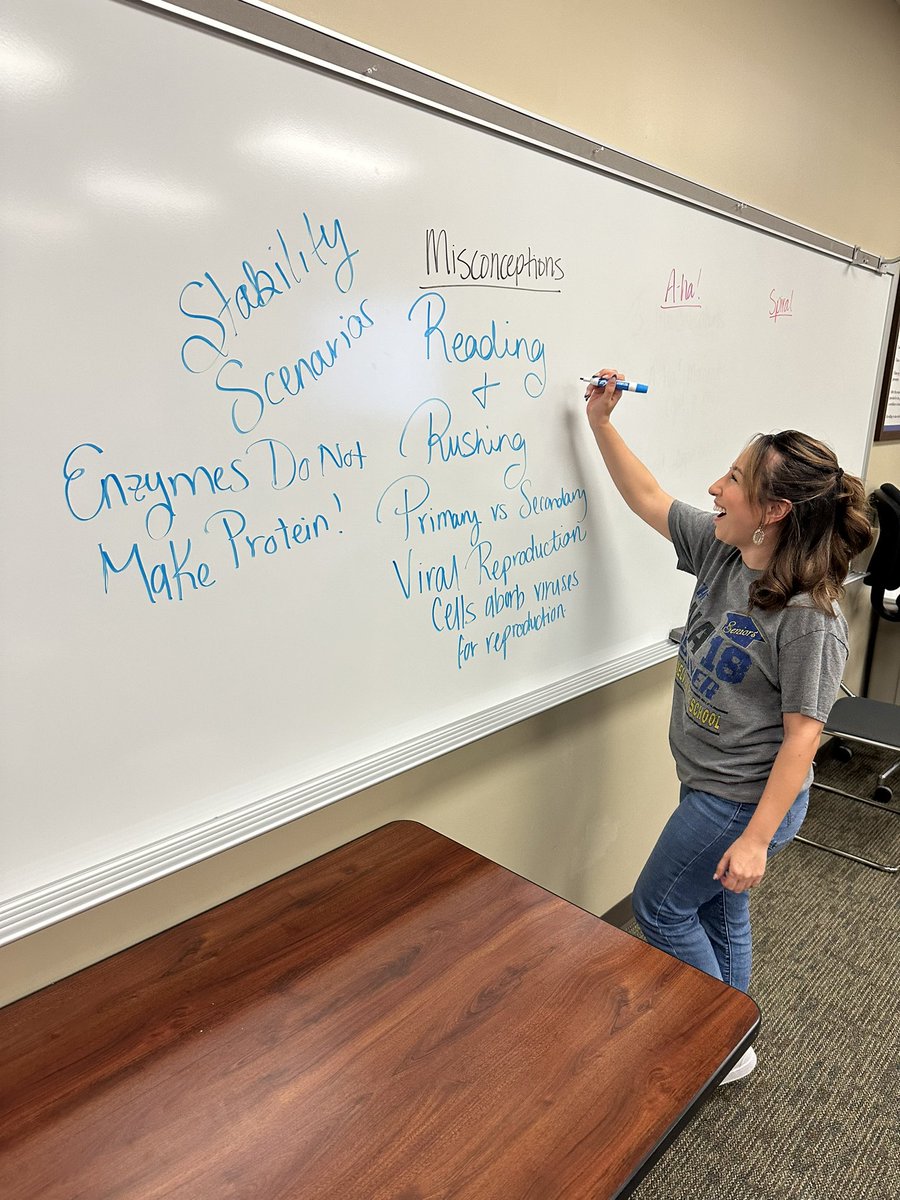 Misconceptions
Stability
Scenarios
Enzymes Do Not
Make Protein!
Reading
+
Rushing
Primary vs Secondary
Viral Reproduction
Cells aborb viruses
for reproduction.
A-ha!
Seniors
18
SCHOOL